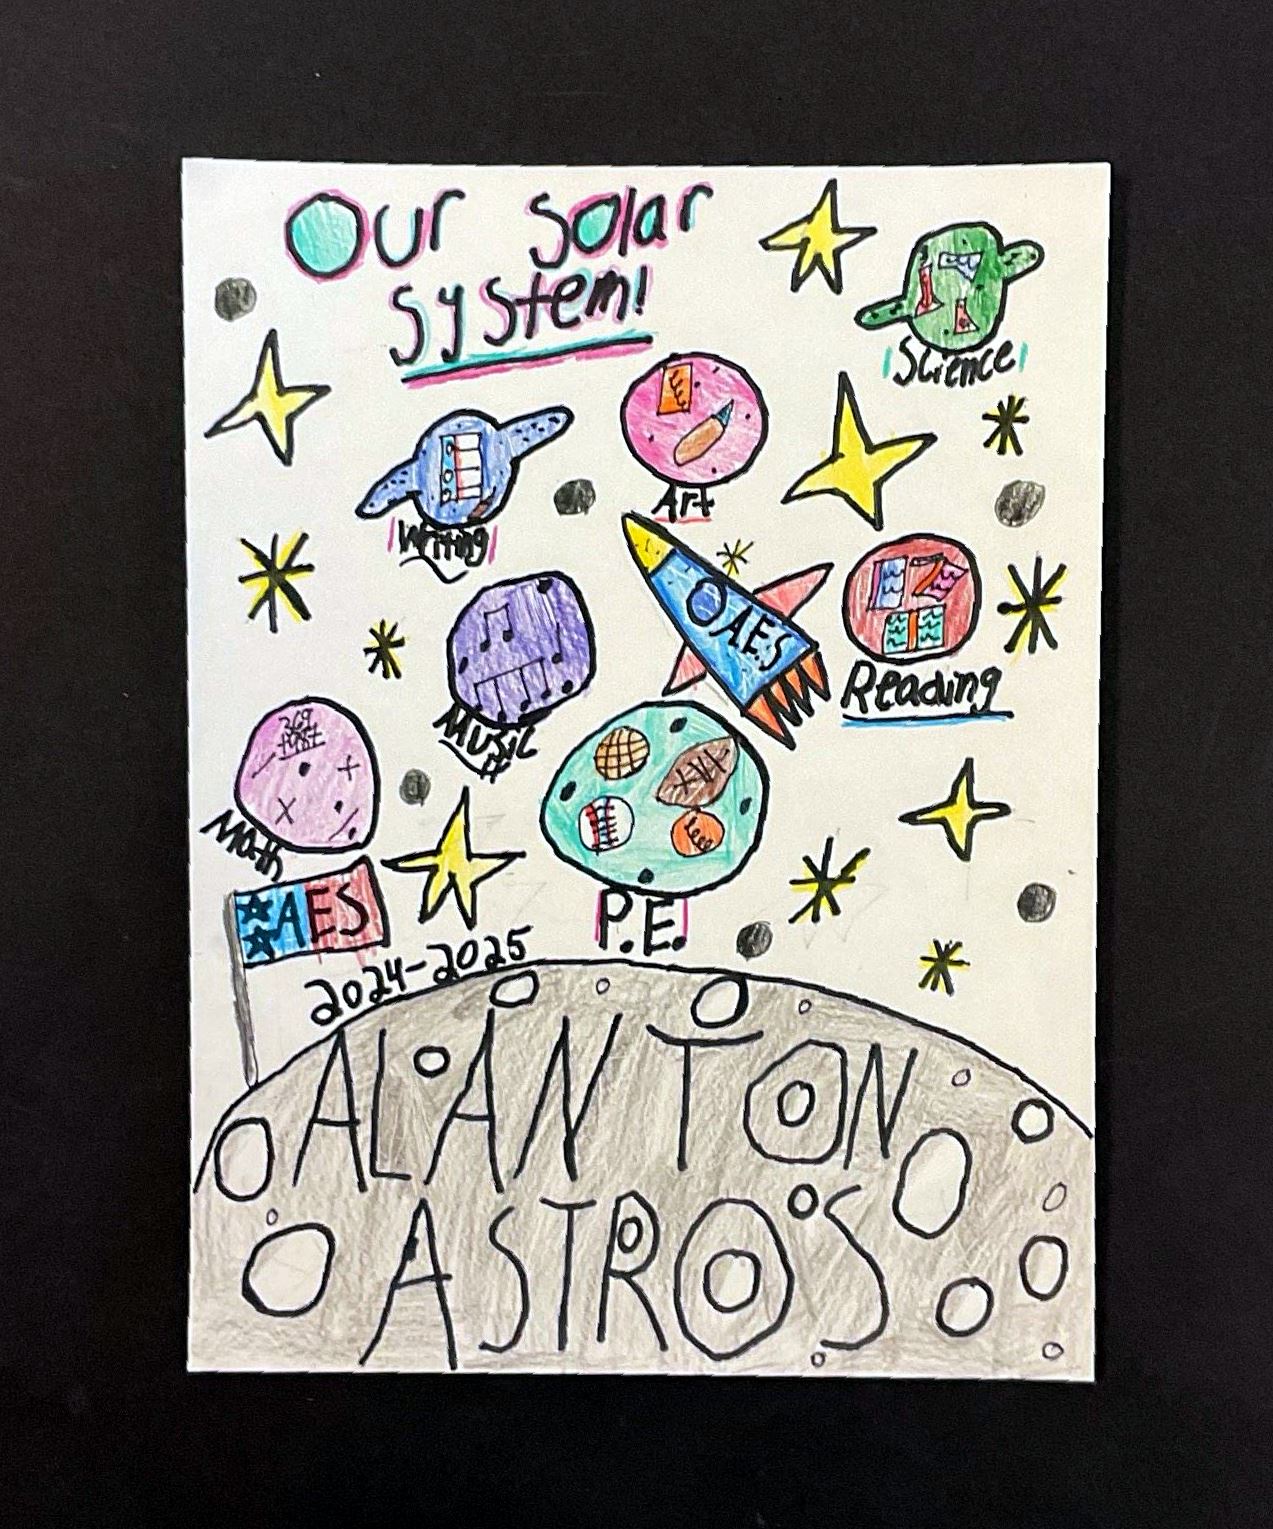 Our Solar
System!
Science
Art
Writing
OAES
Reading
Music
Math
P.E.
AES
2024-2025
ALANTON
ASTROS